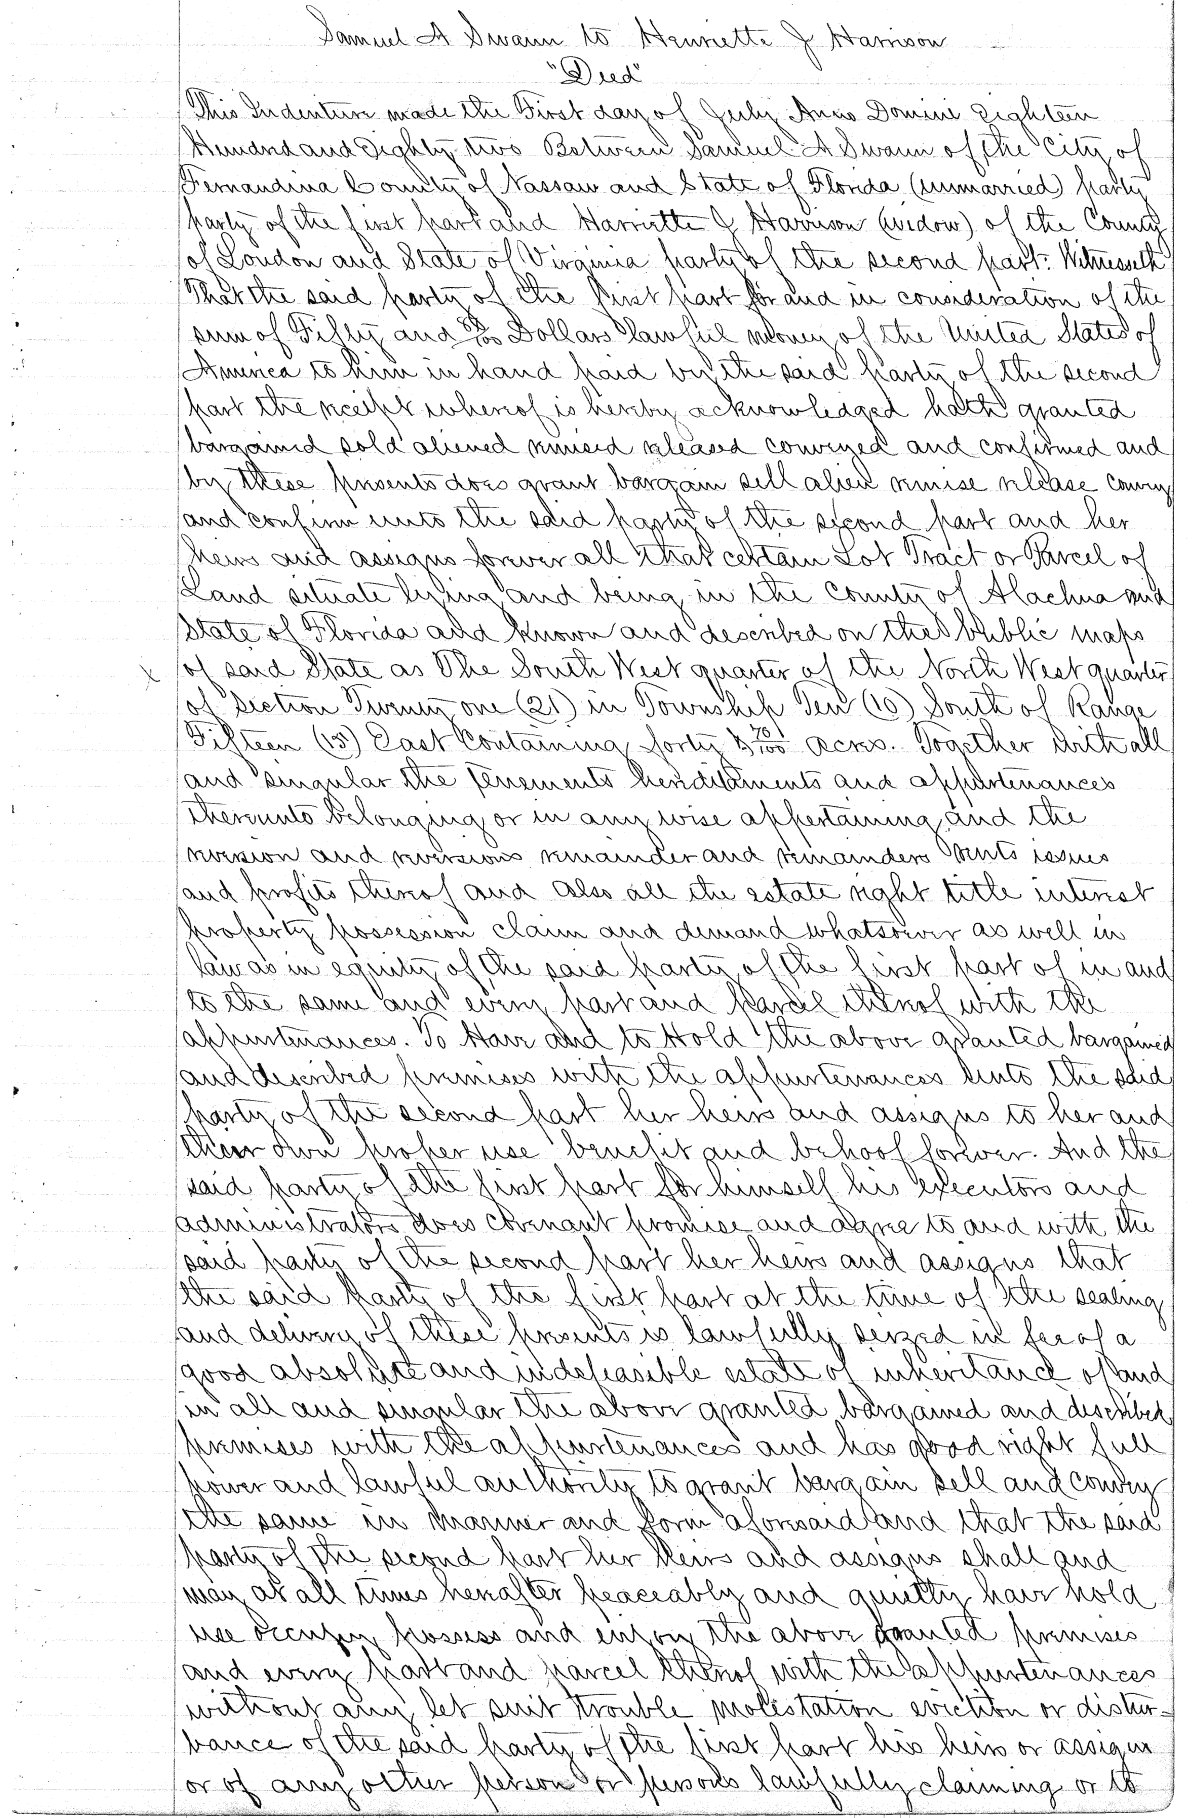 Samuel A Swann to Henriette J Harrison
"Deed"
This Indenture made the First day of July Anno Domini Eighteen
Hundred and Eighty two Between Samuel A Swann of the City of
Fernandina County of Nassau and State of Florida (unmarried) party
party of the first part and Harriette J Harrison (widow) of the County
of London and State of Virginia party of the second part: Witnesseth
That the said party of the first part for and in consideration of the
sum of Fifty and 88/100 Dollars lawful money of the United States of
America to him in hand paid by the said party of the second
part the receipt whereof is hereby acknowledged hath granted
bargained sold aliened remised released conveyed and confirmed and
by these presents does grant bargain sell alien remise release convey
and confirm unto the said party of the second part and her
heirs and assigns forever all that certain Lot Tract or Parcel of
Land situate lying and being in the County of Alachua and
State of Florida and known and described on the public maps
x of said State as The South West quarter of the North West quarter
of Section Twenty one (21) in Township Ten (10) South of Range
Fifteen (15) East Containing forty & 70/100 acres. Together with all
and singular the tenements hereditaments and appurtenances
thereunto belonging or in any wise appertaining and the
reversion and reversions remainder and remainders rents issues
and profits thereof and also all the estate right title interest
property possession claim and demand whatsoever as well in
law as in equity of the said party of the first part of in and
to the same and every part and parcel thereof with the
appurtenances. To Have and to Hold the above granted bargained
and described premises with the appurtenances unto the said
party of the second part her heirs and assigns to her and
their own proper use benefit and behoof forever. And the
said party of the first part for himself his executors and
administrators does covenant promise and agree to and with the
said party of the second part her heirs and assigns that
the said party of the first part at the time of the sealing
and delivery of these presents is lawfully seized in fee of a
good absolute and indefeasible estate of inheritance of and
in all and singular the above granted bargained and described
premises with the appurtenances and has good right full
power and lawful authority to grant bargain sell and convey
the same in manner and form aforesaid and that the said
party of the second part her heirs and assigns shall and
may at all times hereafter peaceably and quietly have hold
use occupy possess and enjoy the above granted premises
and every part and parcel thereof with the appurtenances
without any let suit trouble molestation eviction or distur=
bance of the said party of the first part his heirs or assigns
or of any other person or persons lawfully claiming or to